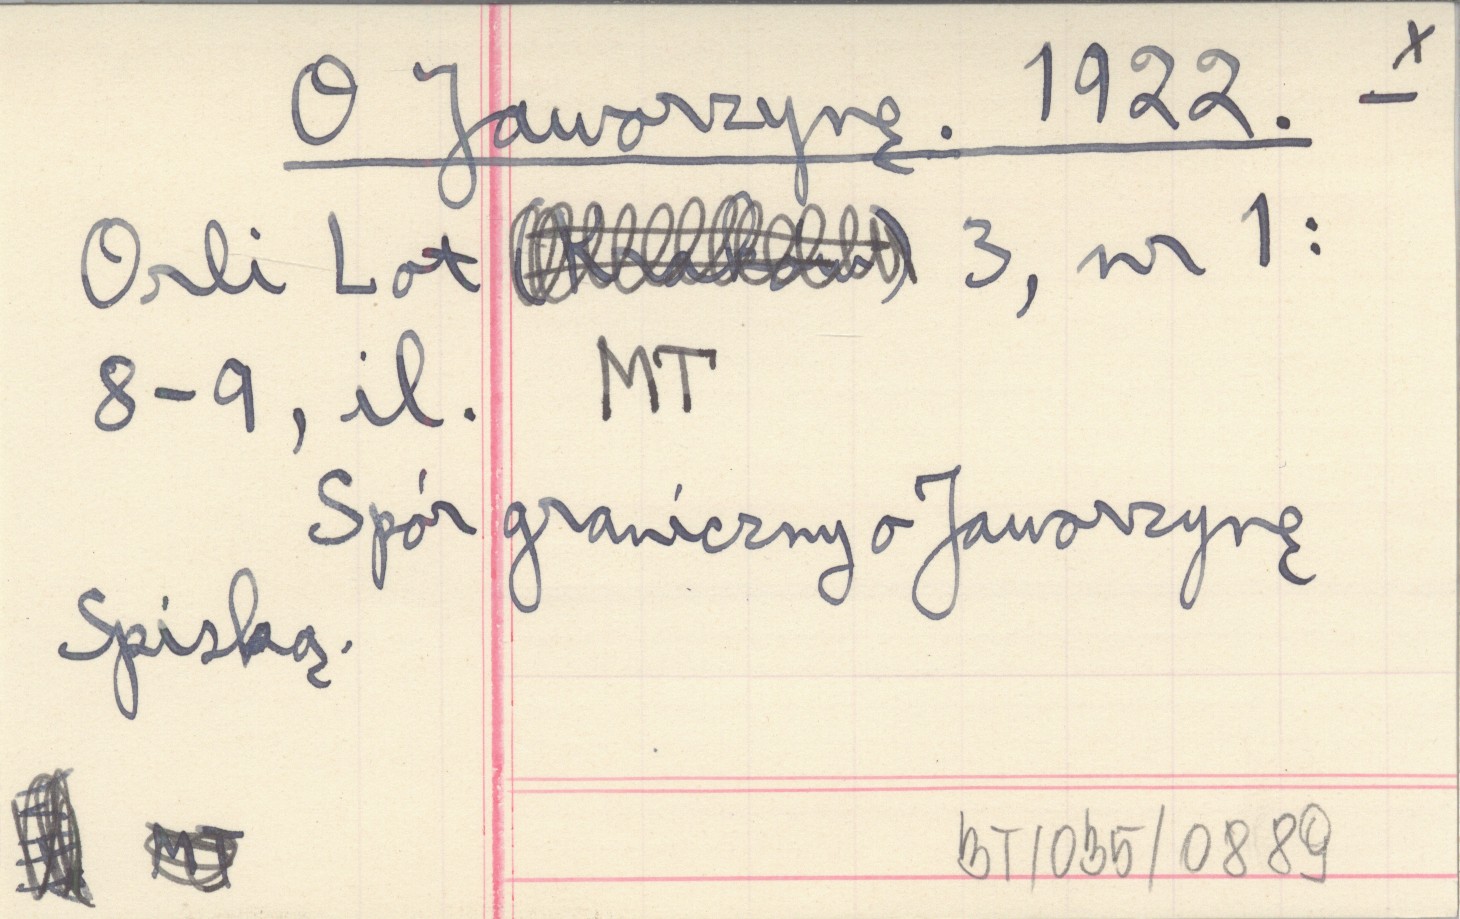 O Jaworzynę. 1922. — x
Orli Lot (Kraków) 3, nr 1:
8-9, il. MT
Spór graniczny o Jaworzynę
Spiską.
MT
BT/035/0889